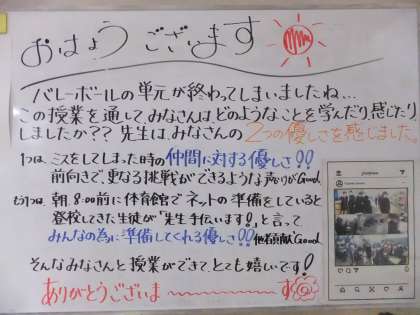 おはようございます
バレーボールの単元が終わってしまいましたね…
この授業を通して、みなさんはどのようなことを学んだり感じたり
しましたか?? 先生は、みなさんの2つの優しさを感じました。
1つは、ミスをしてしまった時の仲間に対する優しさ!!
前向きで、更なる挑戦ができるような声かけがGood
もう1つは、朝、8:00前に体育館でネットの準備をしていると
登校してきた生徒が「先生手伝います!」と言って
みんなの為に準備してくれる優しさ!! 他者貢献Good
そんなみなさんと授業ができて、とても嬉しいです!
ありがとうございま〜〜〜す